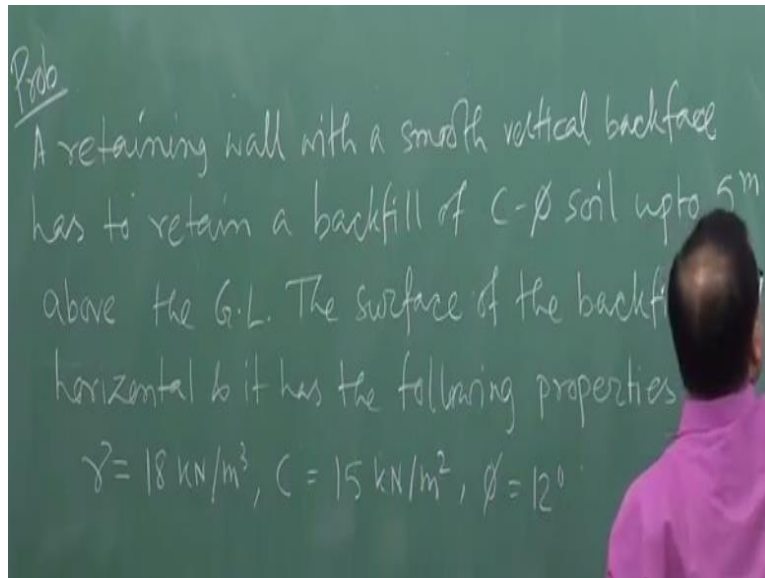 Prob
A retaining wall with a smooth vertical backface
has to retain a backfill of C-ϕ soil upto 5m
above the G.L. The surface of the backfi
horizontal & it has the following properties
γ = 18 kN/m³, C = 15 kN/m², ϕ = 12°